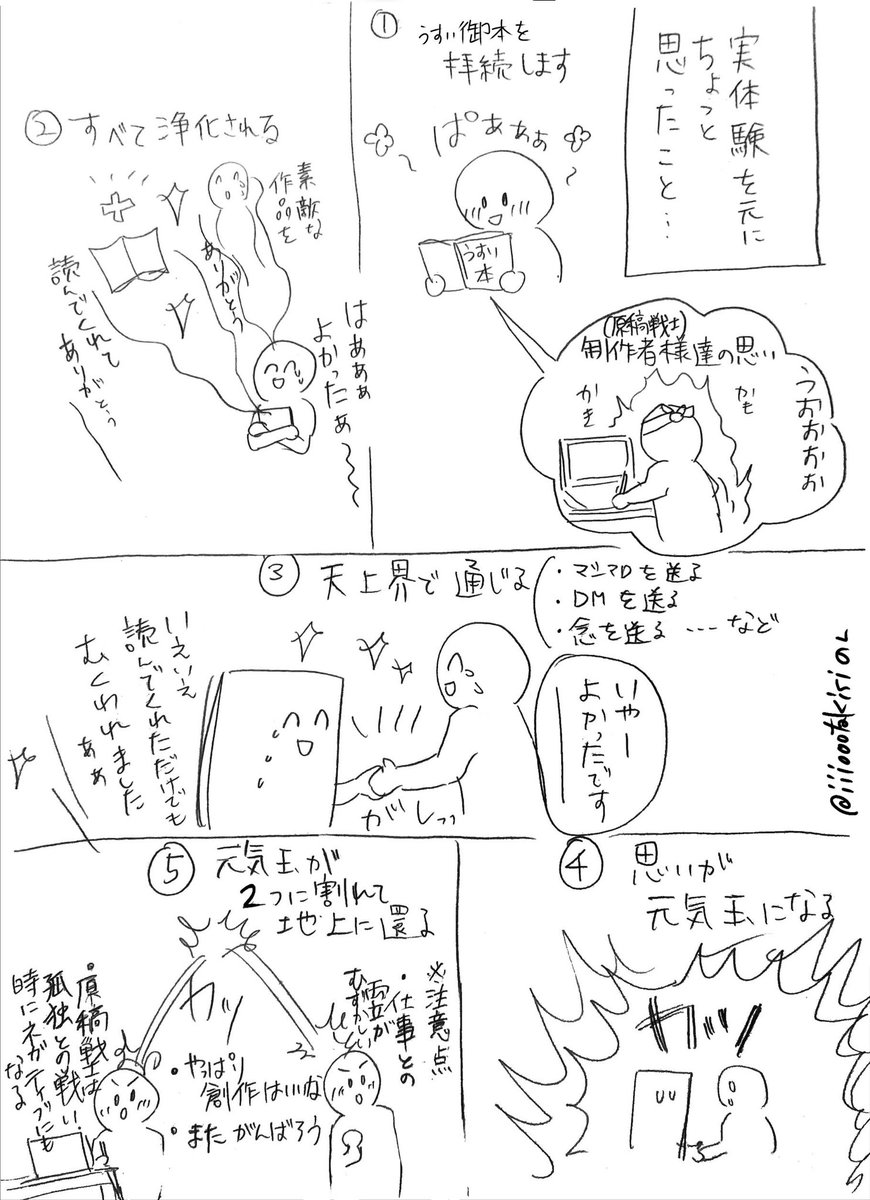 実体験を元に
ちょっと
思ったこと…
① うすい御本を
拝続します
ぱあぁぁ
うすい
本
(原稿戦士)
制作者様達の思い
うおおおお
かも
かき
② すべて浄化される
素敵な
作品を
ありがとう
読んでくれて
ありがとぅ
はあぁぁ
よかったぁ〜
③ 天上界で通じる
・マシマロを送る
・DMを送る
・念を送る …など
いやー
よかったです
がしっ
いえいえ
読んでくれただけでも
むくわれました
ぁぁ
@iiioootakirinoL
④ 思いが
元気玉になる
カッッ
⑤ 元気玉が
2つに割れて
地上に還る
カッ
※注意点
・仕事との
両立が
むずかしい
・やっぱり
創作はいいな
・またがんばろう
・原稿戦士は
孤独との戦い!
時にネガティブにも
なる